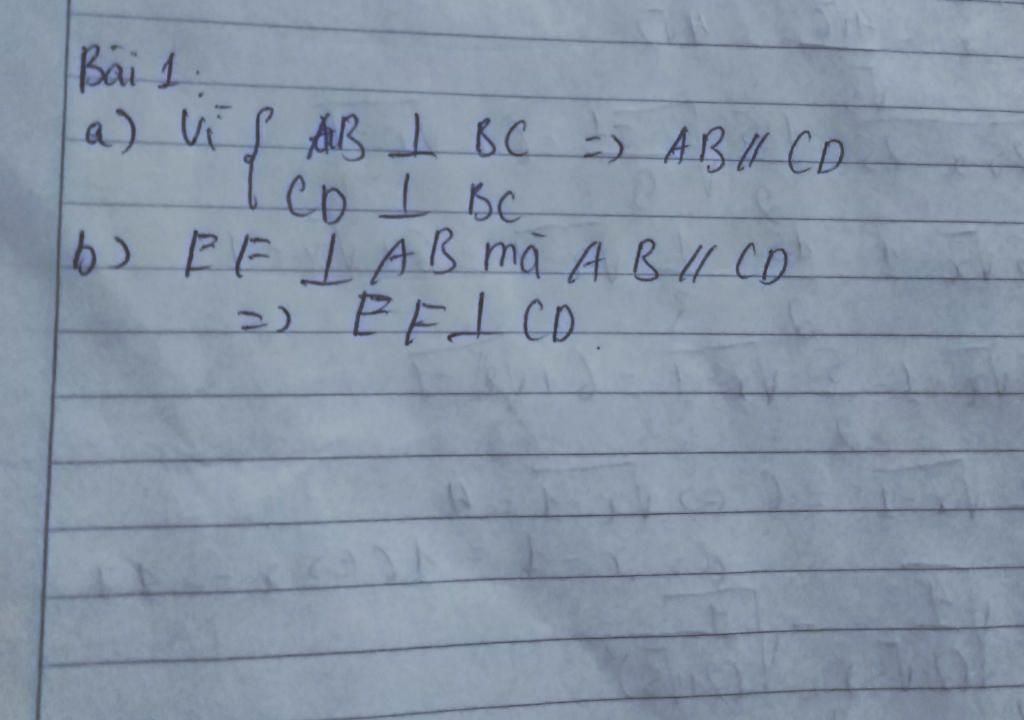 Bài 1:
a) Vì { AB ⊥ BC => AB // CD
CD ⊥ BC
b) EF ⊥ AB mà AB // CD
=> EF ⊥ CD.